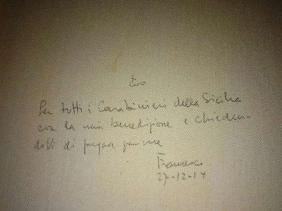 Per tutti i Carabinieri della Sicilia
con la mia benedizione e chieden-
dovi di pregare per me
Francesco
27-12-14